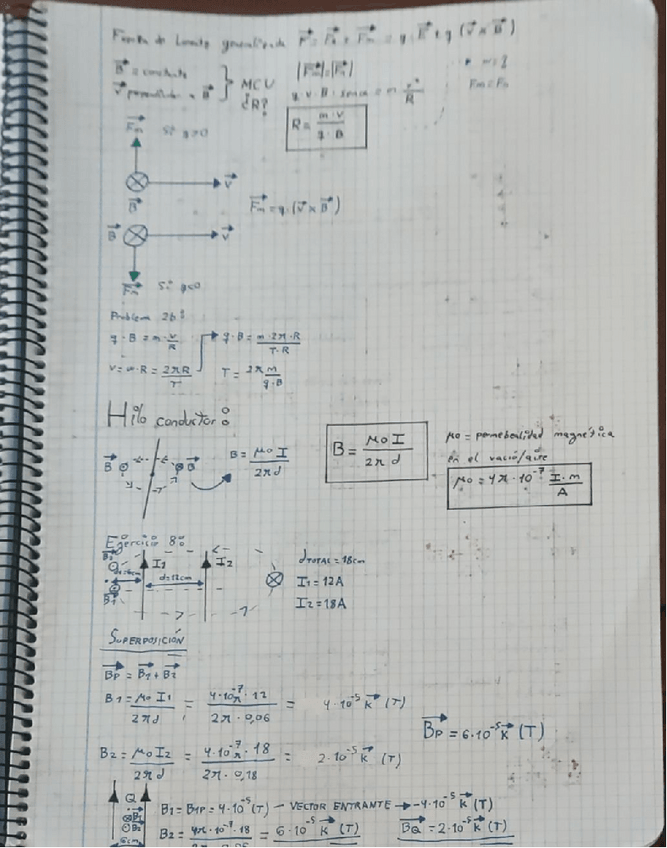 Fuerza de Lorentz generalizada F = Fe + Fm = q · E + q (v × B)
B = constante
v perpendicular a B } MCU ¿R?
|Fm| = |Fc|
q · v · B · senα = m · v²/R
Fm = Fc
R = m · v / q · B
Fm Si q>0
v
B
Fm = q · (v × B)
B v
Fm Si q<0
Problema 2b:
q · B = m · v/R → q · B = m · 2π · R / T · R
v = ω · R = 2πR/T T = 2π m / q · B
Hilo conductor:
B B B = μ0 I / 2π d
B = μ0 I / 2π d
μ0 = permebealidad magnética
en el vacío/aire
μ0 = 4π · 10⁻⁷ I · m / A
Ejercicio 8:
I1 I2
d=12cm
B1
dTOTAL = 18cm
I1 = 12A
I2 = 18A
SUPERPOSICIÓN
BP = B1 + B2
B1 = μ0 I1 / 2πd = 4·10⁻⁷π · 12 / 2π · 0,06 = 4·10⁻⁵ k (T)
BP = 6·10⁻⁵ k (T)
B2 = μ0 I2 / 2πd = 4·10⁻⁷π · 18 / 2π · 0,18 = 2·10⁻⁵ k (T)
Q
B1
B2
6cm
B1 = B1P = 4·10⁻⁵ (T) — VECTOR ENTRANTE → -4·10⁻⁵ k (T)
B2 = 4π · 10⁻⁷ · 18 = 6·10⁻⁵ k (T) BQ = 2·10⁻⁵ k (T)